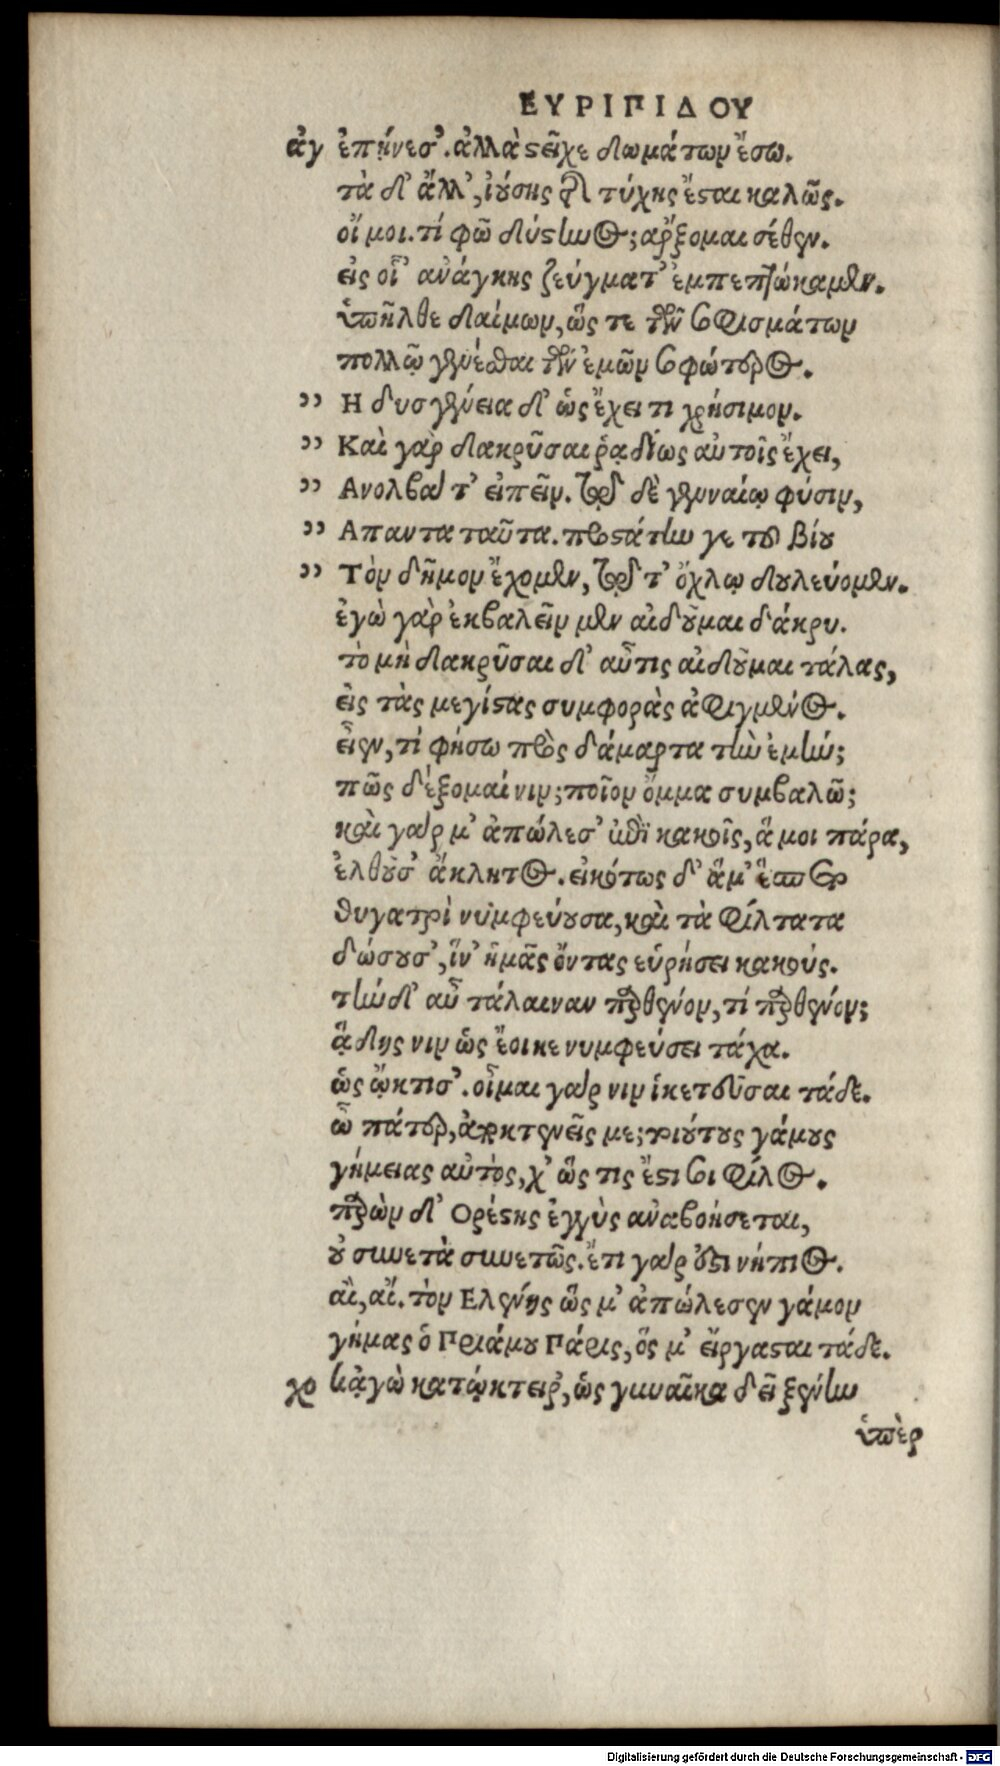 ΕΥΡΙΠΙΔΟΥ
ἀγ ἐπῄνεσ'. ἀλλὰ στεῖχε δωμάτων ἔσω.
τὰ δ' ἄλλ', ἰούσης τῆς τύχης ἔσται καλῶς.
οἴ μοι. τί φῶ δύστηνος; ἄρξομαι σέθεν.
εἰς οἷ' ἀνάγκης ζεύγματ' ἐμπεπτώκαμεν.
ὑπῆλθε δαίμων, ὥς τε τῶν σοφισμάτων
πολλῷ γενέσθαι τῶν ἐμῶν σοφώτερος.
” Η δυσγένεια δ' ὡς ἔχει τι χρήσιμον.
” Καὶ γὰρ δακρῦσαι ῥᾳδίως αὐτοῖς ἔχει,
” Ανολβά τ' εἰπεῖν. τῷ δὲ γενναίῳ φύσιν,
” Απαντα ταῦτα. προστάτην γε τοῦ βίου
” Τὸν δῆμον ἔχομεν, τῷ τ' ὄχλῳ δουλεύομεν.
ἐγὼ γὰρ ἐκβαλεῖν μὲν αἰδοῦμαι δάκρυ.
τὸ μὴ δακρῦσαι δ' αὖτις αἰδοῦμαι τάλας,
εἰς τὰς μεγίστας συμφορὰς ἀφιγμένος.
εἶεν, τί φήσω πρὸς δάμαρτα τὴν ἐμήν;
πῶς δέξομαί νιν; ποῖον ὄμμα συμβαλῶ;
καὶ γάρ μ' ἀπώλεσ' ἐπὶ κακοῖς, ἅ μοι πάρα,
ἐλθοῦσ' ἄκλητος. εἰκότως δ' ἅμ' ἕσπετο
θυγατρὶ νυμφεύουσα, καὶ τὰ φίλτατα
δώσουσ', ἵν' ἡμᾶς ὄντας εὑρήσει κακούς.
τὴν δ' αὖ τάλαιναν παρθένον, τί παρθένον;
ᾅδης νιν ὡς ἔοικε νυμφεύσει τάχα.
ὡς ᾤκτισ'. οἶμαι γάρ νιν ἱκετεῦσαι τάδε.
ὦ πάτερ, ἀποκτενεῖς με; τοιούτους γάμους
γήμειας αὐτὸς, χ' ὥς τις ἔστι σοι φίλος.
παρὼν δ' Ορέστης ἐγγὺς ἀναβοήσεται,
οὐ συνετὰ συνετῶς. ἔτι γάρ ἐστι νήπιος.
αἲ, αἴ. τὸν Ελένης ὥς μ' ἀπώλεσεν γάμον
γήμας ὁ Πριάμου Πάρις, ὅς μ' εἴργασται τάδε.
χο κᾀγὼ κατῴκτειρ', ὡς γυναῖκα δεῖ ξένην
ὑπὲρ
Digitalisierung gefördert durch die Deutsche Forschungsgemeinschaft - DFG